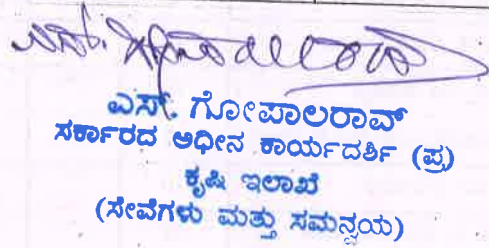 ಎಸ್. ಗೋಪಾಲರಾವ್
ಎಸ್. ಗೋಪಾಲರಾವ್
ಸರ್ಕಾರದ ಅಧೀನ ಕಾರ್ಯದರ್ಶಿ (ಪ್ರ)
ಕೃಷಿ ಇಲಾಖೆ
(ಸೇವೆಗಳು ಮತ್ತು ಸಮನ್ವಯ)